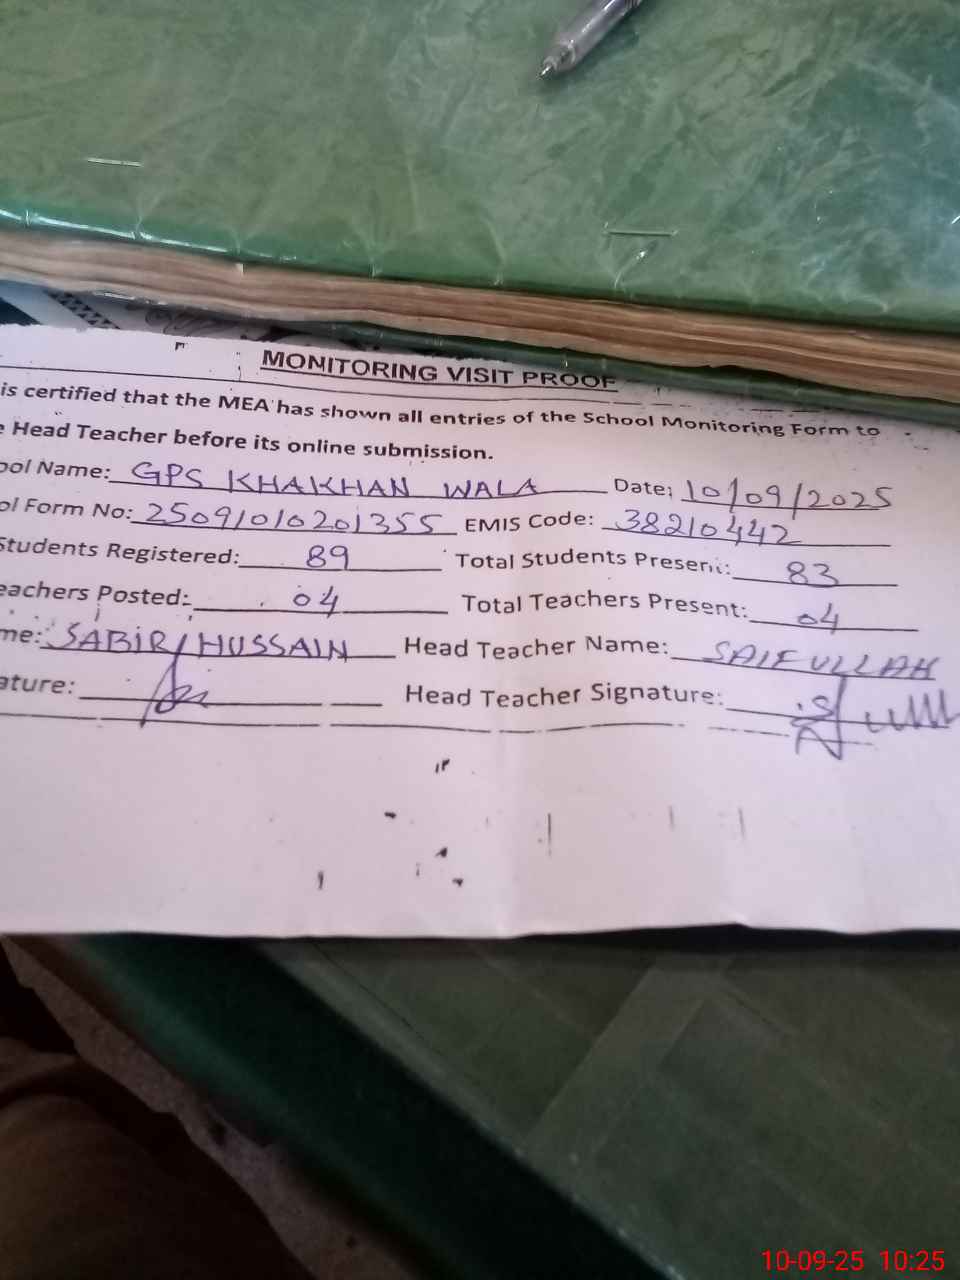 MONITORING VISIT PROOF
is certified that the MEA has shown all entries of the School Monitoring Form to
e Head Teacher before its online submission.
ool Name: GPS KHAKHAN WALA Date: 10/09/2025
ol Form No: 2509/010201355 EMIS Code: 38210442
Students Registered: 89 Total Students Present: 83
eachers Posted: 04 Total Teachers Present: 04
me: SABIR HUSSAIN Head Teacher Name: SAIFULLAH
ature: Head Teacher Signature:
10-09-25 10:25